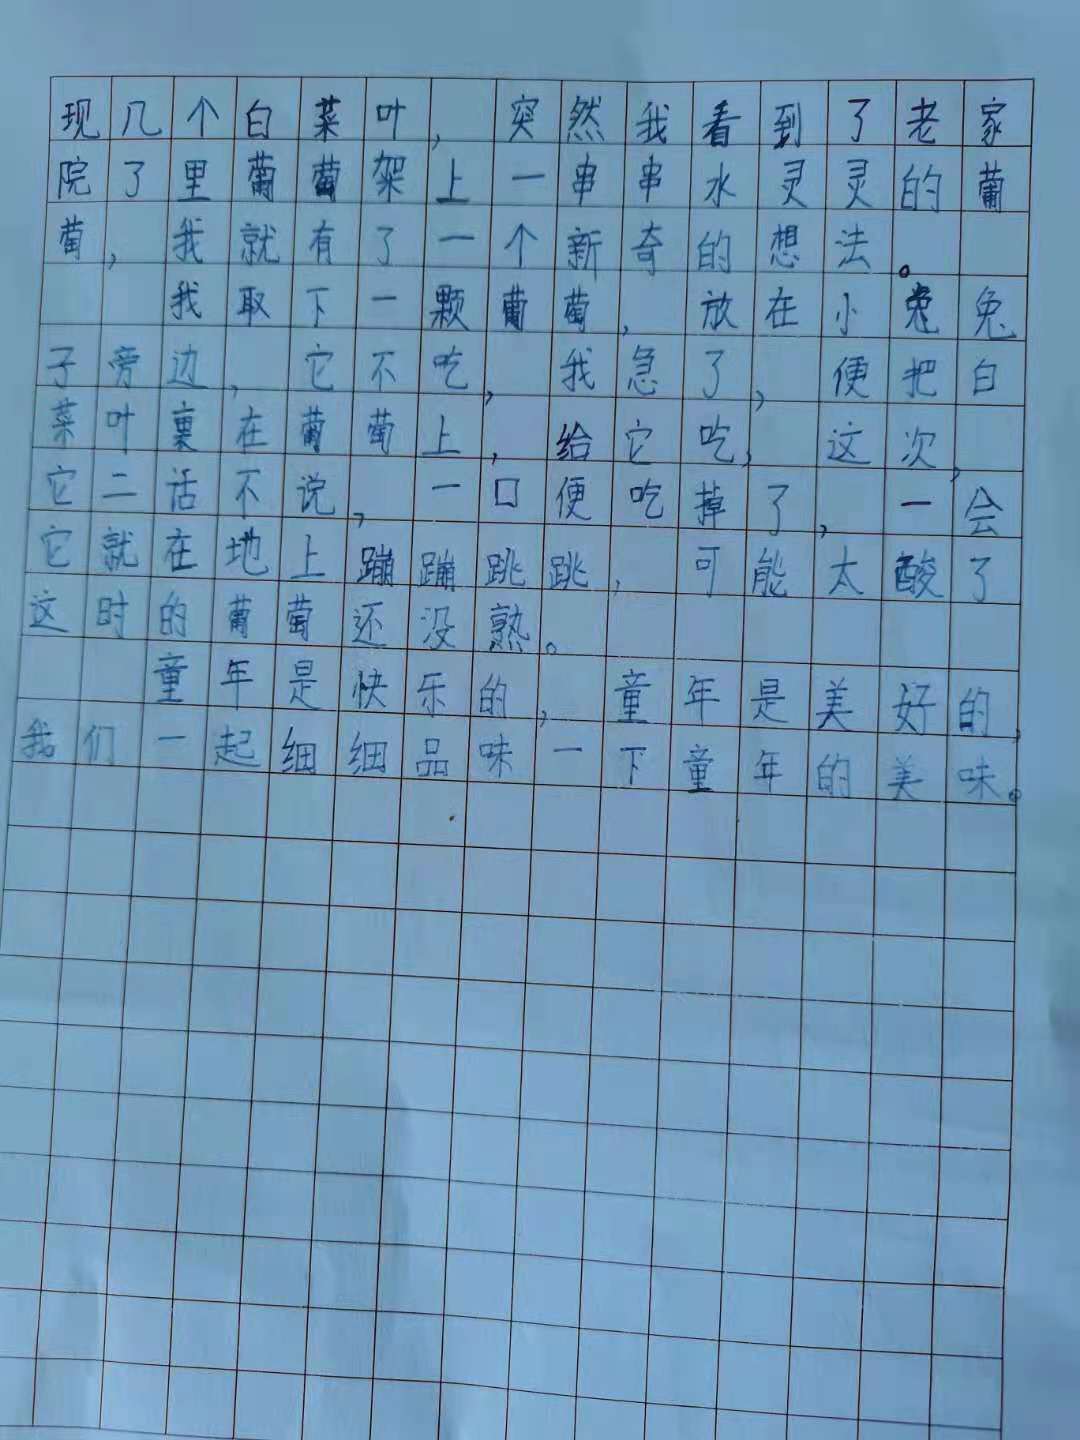 现几个白菜叶，突然我看到了老家
院了里葡萄架上一串串水灵灵的葡
萄，我就有了一个新奇的想法。
我取下一颗葡萄，放在小兔兔
子旁边，它不吃，我急了，便把白
菜叶裹在葡萄上，给它吃，这次，
它二话不说，一口便吃掉了，一会
它就在地上蹦蹦跳跳，可能太酸了
这时的葡萄还没熟。
童年是快乐的，童年是美好的，
我们一起细细品味一下童年的美味。